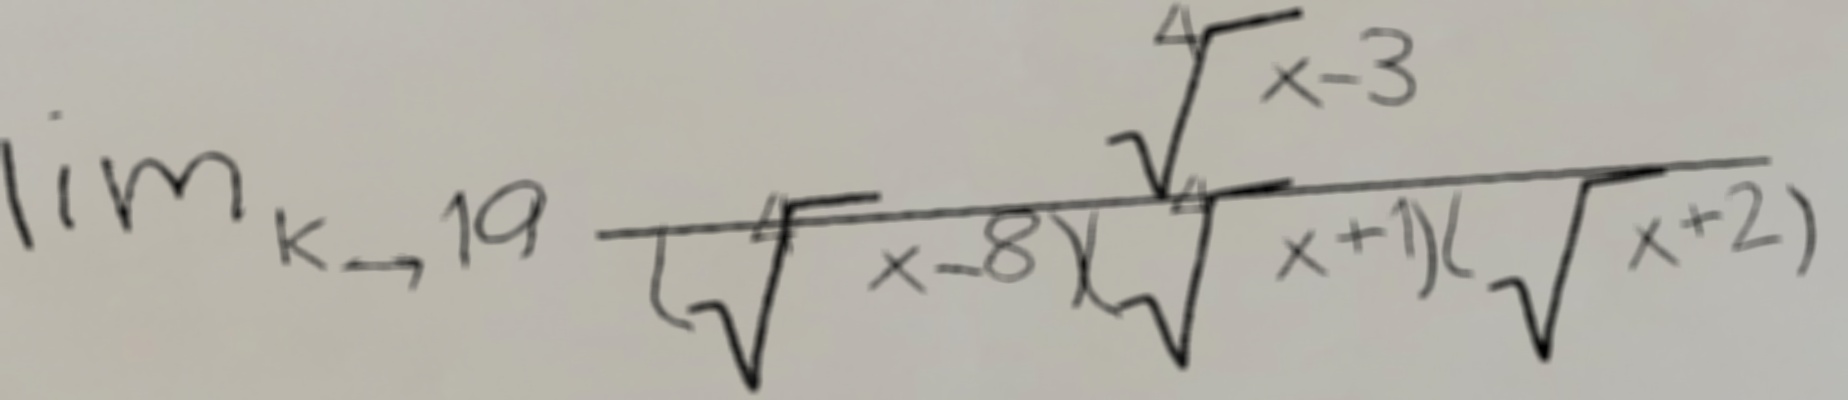 lim k→19 ⁴√x-3 / (⁴√x-8)(⁴√x+1)(√x+2)